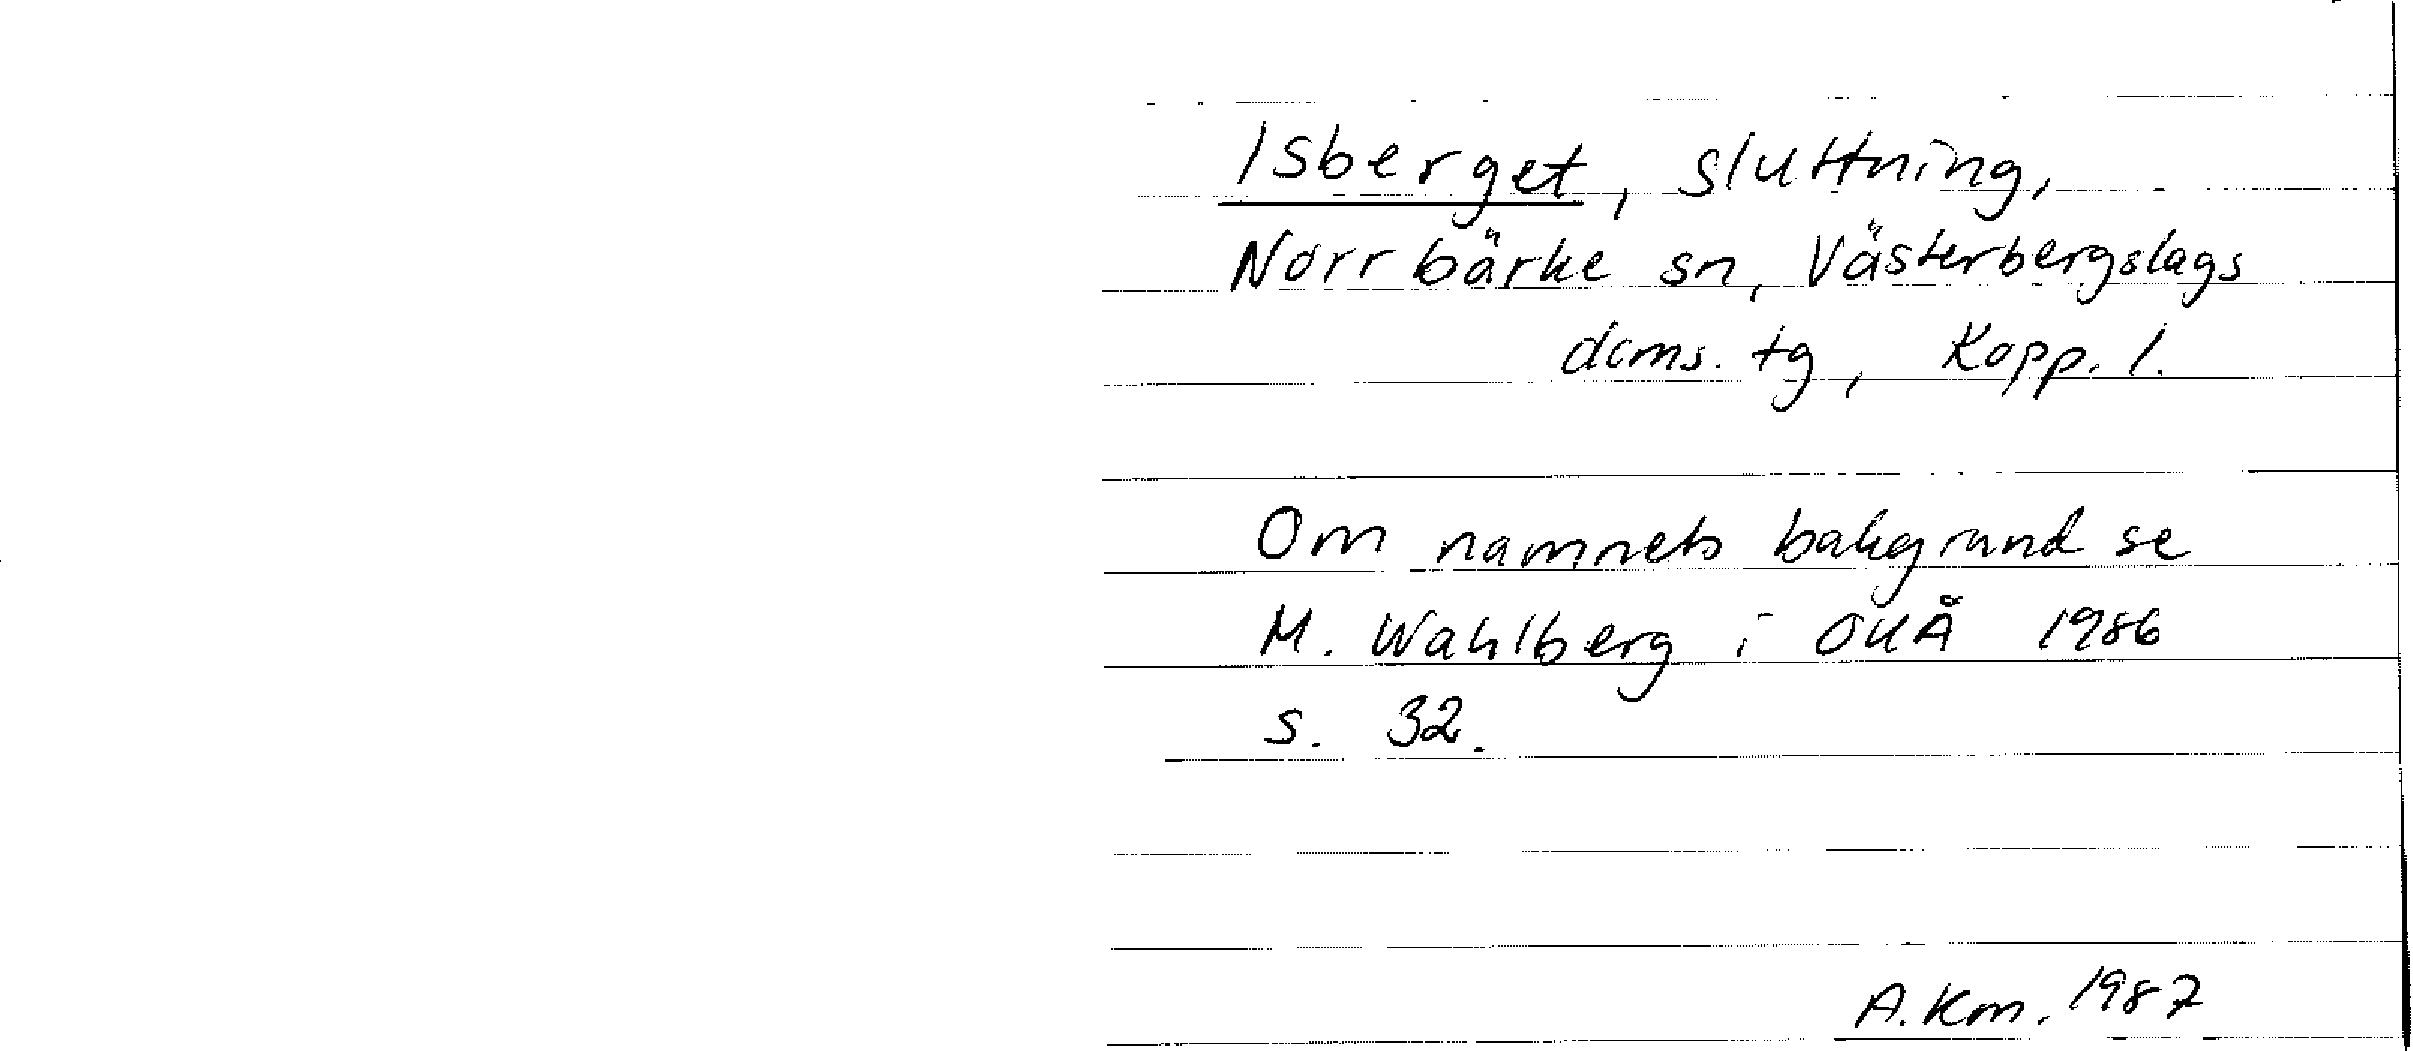 Isberget, sluttning,
Norrbärke sn, Västerbergslags
doms. tg, Kopp. l.
Om namnets bakgrund se
M. Wahlberg i OUÅ 1986
s. 32.
A. Km. 1987